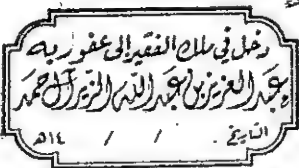 دخل في ملك الفقير إلى عفو ربه
عبد العزيز بن عبد الله الزير آل حمد
التاريخ / / ١٤هـ